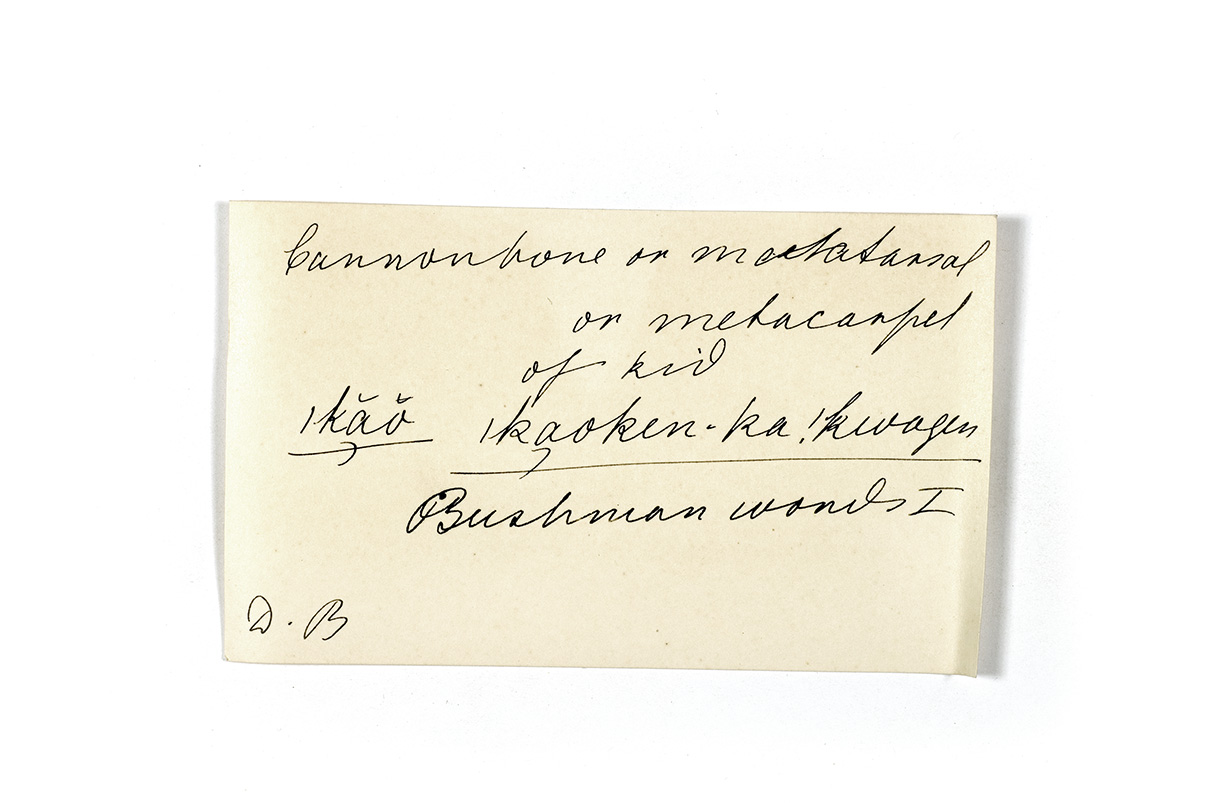 Cannonbone or metatarsal
or metacarpel
of kid
ǀkă̰ŏ ǀka̰oken-ka !kwagen
Bushman words I
D. B